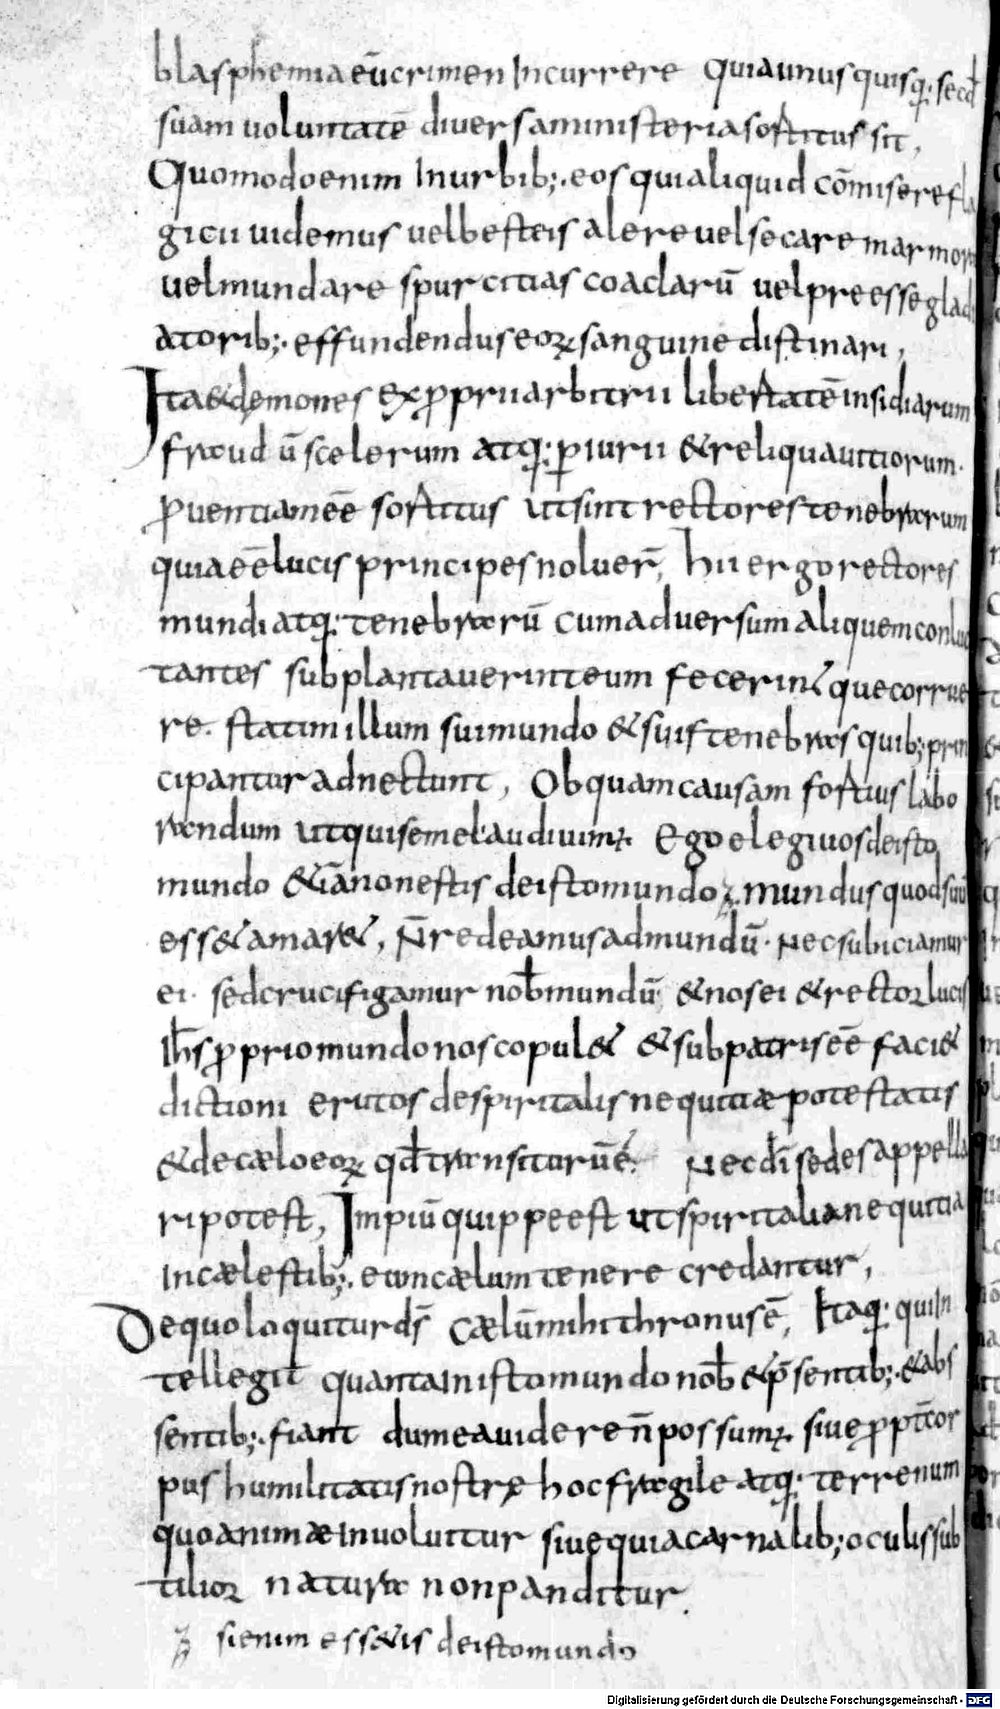 blasphemia eū crimen Incurrere quia unusquisq; secd̄
suam uoluntatē diuersa ministeria sortitus sit,
Quomodo enim In urbib; eos qui aliquid cōmisere fla
gicii uidemus uel besteis alere uel secare marmora
uel mundare spurcitias coaclarū uel preesse gladi
atorib; effundendus eoꝝ sanguine distinari,
Ita & dęmones ex ꝓprii arbitrii libertatē insidiarum
fraud ū scelerum atq; ꝑiurii & reliqua uitiorum.
ꝓuentiam eē sortitus ut sint rectores tenebrarum
quia eē lucis principes noluer̄, hii ergo rectores
mundi atq; tenebrarū cum aduersum aliquem conluc
tantes subplantauerint eum fecerintque corrue
re. statim illum sui mundo & suis tenebras quib; prin
cipantur adnectunt, Ob quam causam fortius labo
randum ut qui semel audiuimꝰ Ego elegi uos de isto
mundo & iā non estis de isto mundo mundus quod suū
ess& amar&, N̄ redeamus ad mundū. Nec subiciamur
ei. sed crucifigamur nob̄ mundū & nos ei & rectoꝝ lucis
Ih̄s ꝓprio mundo nos copul& & sub patris eē faci&
dictioni erutos de spiritalis nequitiæ potestatis
& de cælo eoꝝ qd̄ transitorū ē. Nec dī sedes appella
ri potest, Impiū quippe est ut spiritalia nequitia
In cælestib; eum cælum tenere credantur,
De quo loquitur dš cælū mihi thronus ē, Itaq; qui In
tellegit quanta In isto mundo nob̄ & p̄sentib; & abs
sentib; fiant dum ea uidere n̄ possumꝰ siue ꝓpt̄ cor
pus humilitatis nostrę hoc fragile atq; terrenum
quo animæ Inuoluitur siue quia carnalib; oculis sub
tilioꝝ natura non panditur.
si enim ess&is de isto mundo
Digitalisierung gefördert durch die Deutsche Forschungsgemeinschaft - DFG